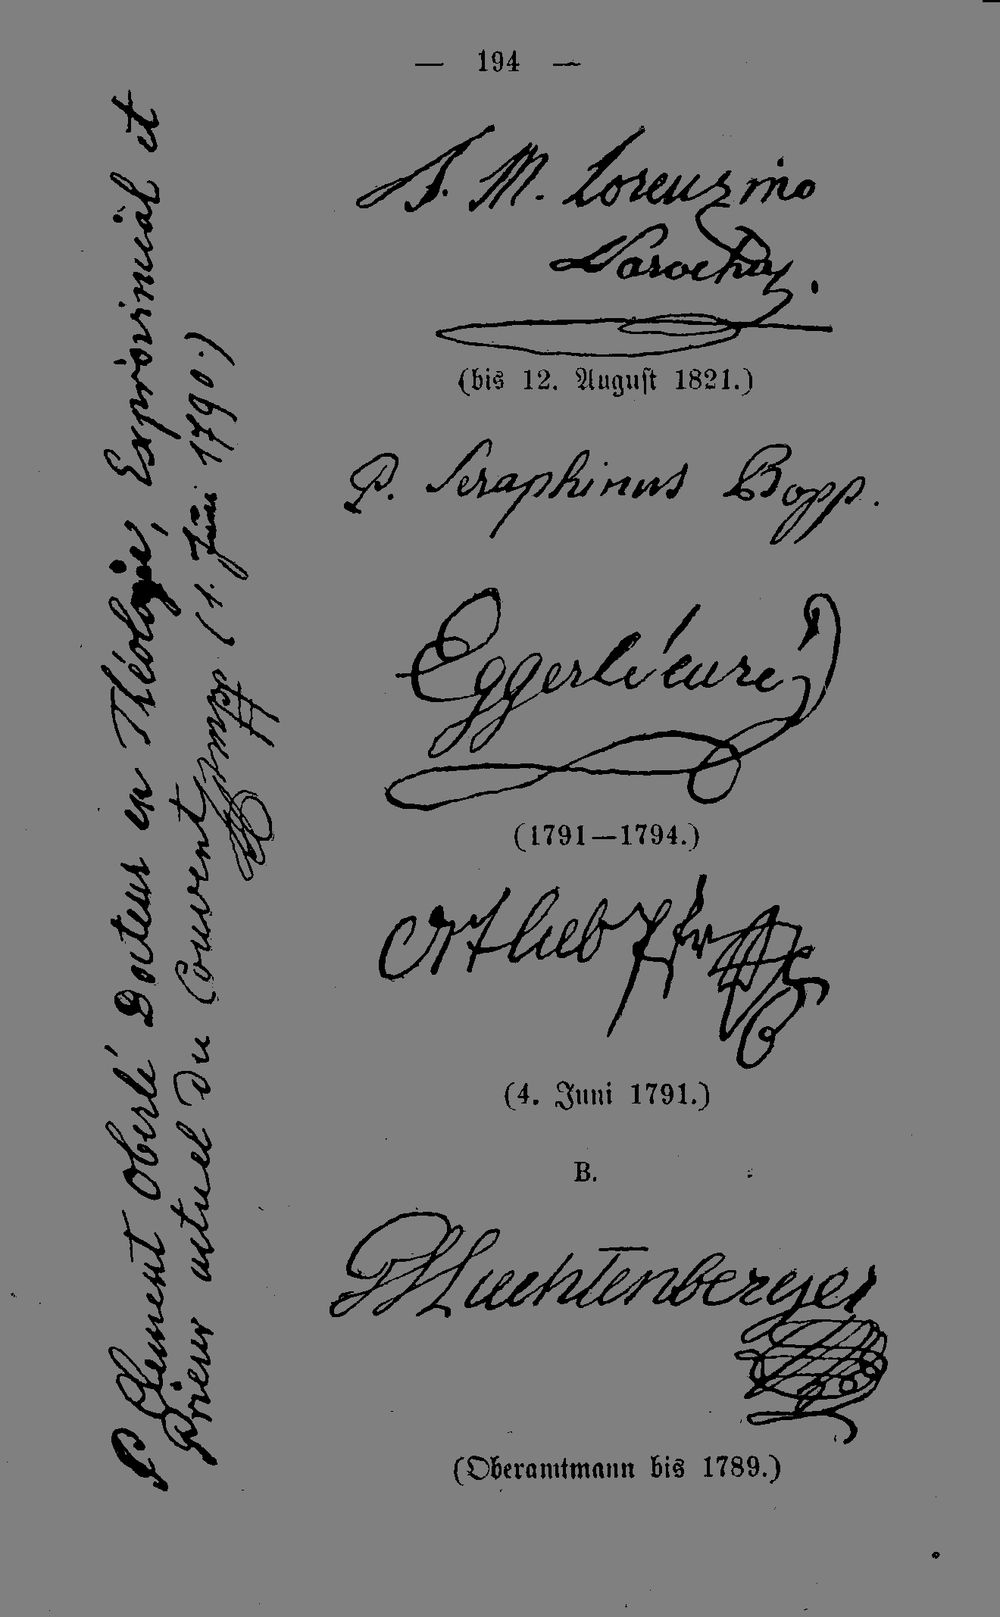 — 194 —
F. M. Lorenzino
Parochus.
(bis 12. August 1821.)
P. Seraphinus Bopp.
Eggerlé curé
(1791—1794.)
Ortlieb
(4. Juni 1791.)
B.
Luchtenberger
(Oberamtmann bis 1789.)
P Clement Oberlé Docteur en Théologie, Exprovincial et
Prieur actuel du Couvent (1. Juni 1790.)